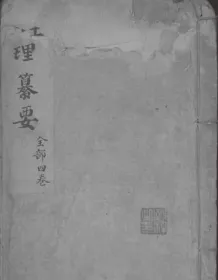 理纂要
全部四卷